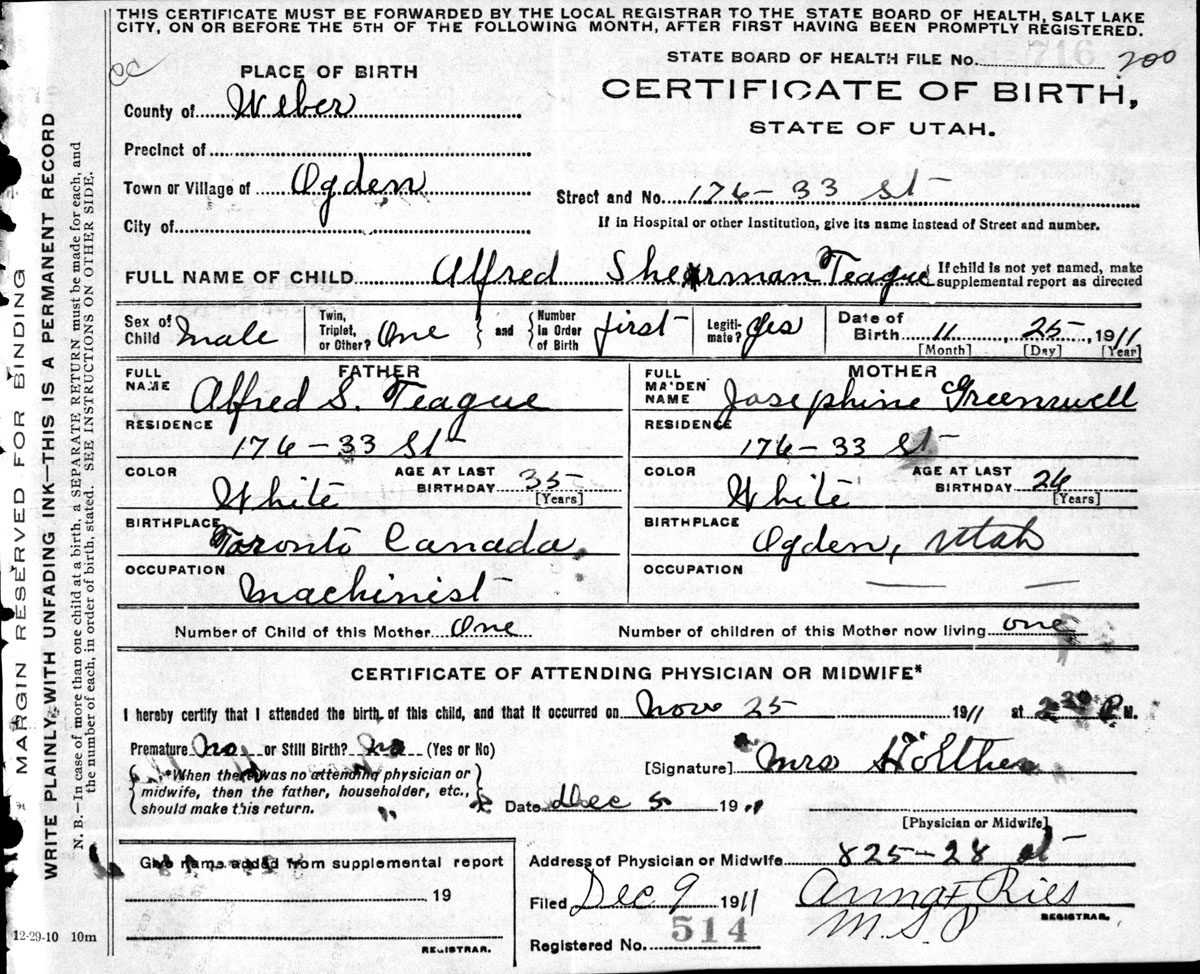 THIS CERTIFICATE MUST BE FORWARDED BY THE LOCAL REGISTRAR TO THE STATE BOARD OF HEALTH, SALT LAKE
CITY, ON OR BEFORE THE 5TH OF THE FOLLOWING MONTH, AFTER FIRST HAVING BEEN PROMPTLY REGISTERED.
STATE BOARD OF HEALTH FILE No. 716 200
PLACE OF BIRTH
CERTIFICATE OF BIRTH,
STATE OF UTAH.
County of Weber
Precinct of
Town or Village of Ogden
Street and No. 176-33 St
City of
If in Hospital or other Institution, give its name instead of Street and number.
FULL NAME OF CHILD Alfred Sherman Teague
If child is not yet named, make
supplemental report as directed
Sex of Child male
Twin, Triplet, or Other? One
and Number in Order of Birth first
Legitimate? yes
Date of Birth 11, 25, 1911
[Month] [Day] [Year]
FATHER
FULL NAME Alfred S. Teague
RESIDENCE 176-33 St
COLOR White
AGE AT LAST BIRTHDAY 35 [Years]
BIRTHPLACE Toronto Canada
OCCUPATION Machinist
MOTHER
FULL MAIDEN NAME Josephine Greenwell
RESIDENCE 176-33 St
COLOR White
AGE AT LAST BIRTHDAY 26 [Years]
BIRTHPLACE Ogden, Utah
OCCUPATION
Number of Child of this Mother One
Number of children of this Mother now living one
CERTIFICATE OF ATTENDING PHYSICIAN OR MIDWIFE*
I hereby certify that I attended the birth of this child, and that it occurred on Nov 25 1911 at P. M.
Premature no or Still Birth? no (Yes or No)
*When there was no attending physician or
midwife, then the father, householder, etc.,
should make this return.
[Signature] Mrs
Date Dec 5 19
[Physician or Midwife]
Give name added from supplemental report
19
REGISTRAR.
Address of Physician or Midwife 825-28 st
Filed Dec 9 1911
Anna F Ries
REGISTRAR.
Registered No. 514
12-29-10 10m
MARGIN RESERVED FOR BINDING
WRITE PLAINLY WITH UNFADING INK—THIS IS A PERMANENT RECORD
N. B.—In case of more than one child at a birth, a SEPARATE RETURN must be made for each, and
the number of each, in order of birth, stated. SEE INSTRUCTIONS ON OTHER SIDE.